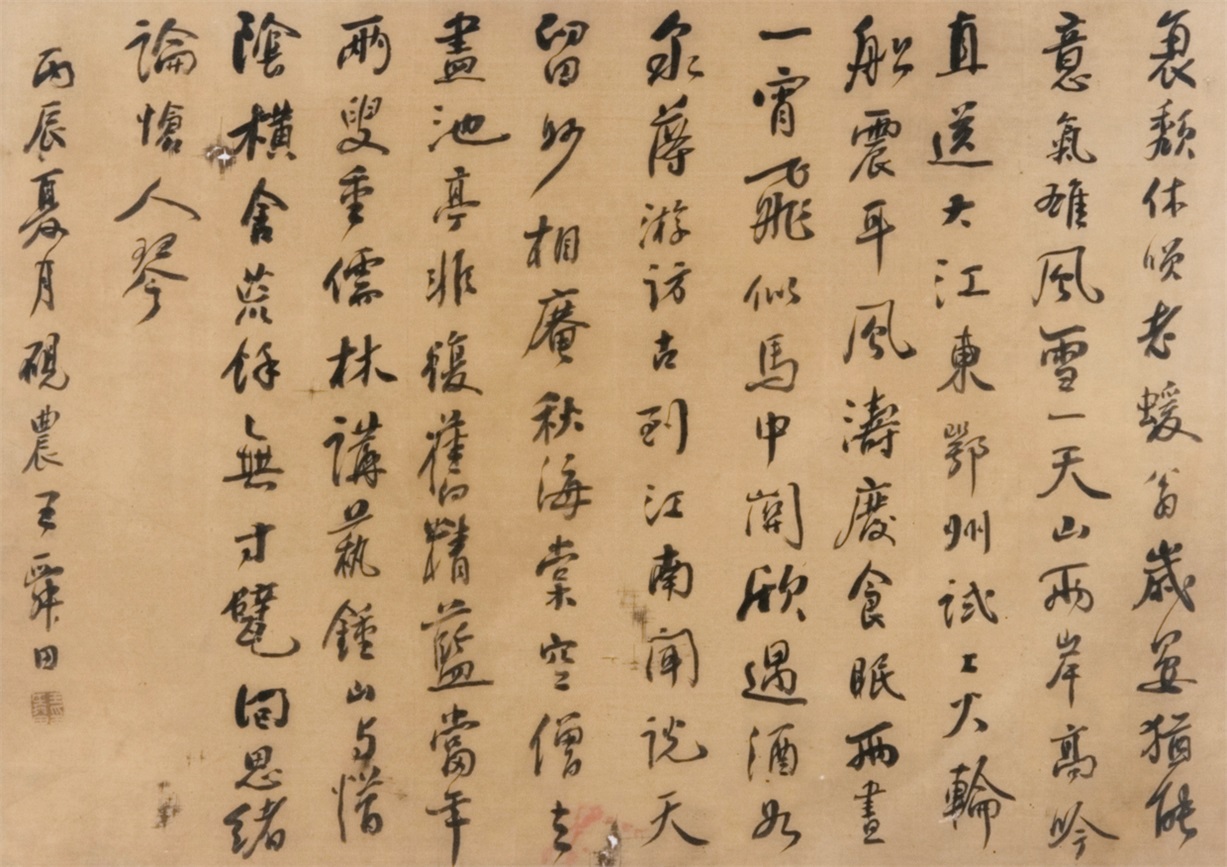 衰頹休喚老蝯翁歲晏猶能
意氣雄風雪一天山兩岸高吟
直送大江東鄂州試上火輪
船震耳風濤廢食眠兩晝
一宵飛似馬中關欣遇酒如
泉薄游訪古到江南聞說天
留妙相庵秋海棠空僧去
盡池亭非復舊精藍當年
兩叟重儒林講藝鍾山与惜
陰橫舍荒餘無寸甓回思緒
論愴人琴
丙辰夏月硯農王舜田